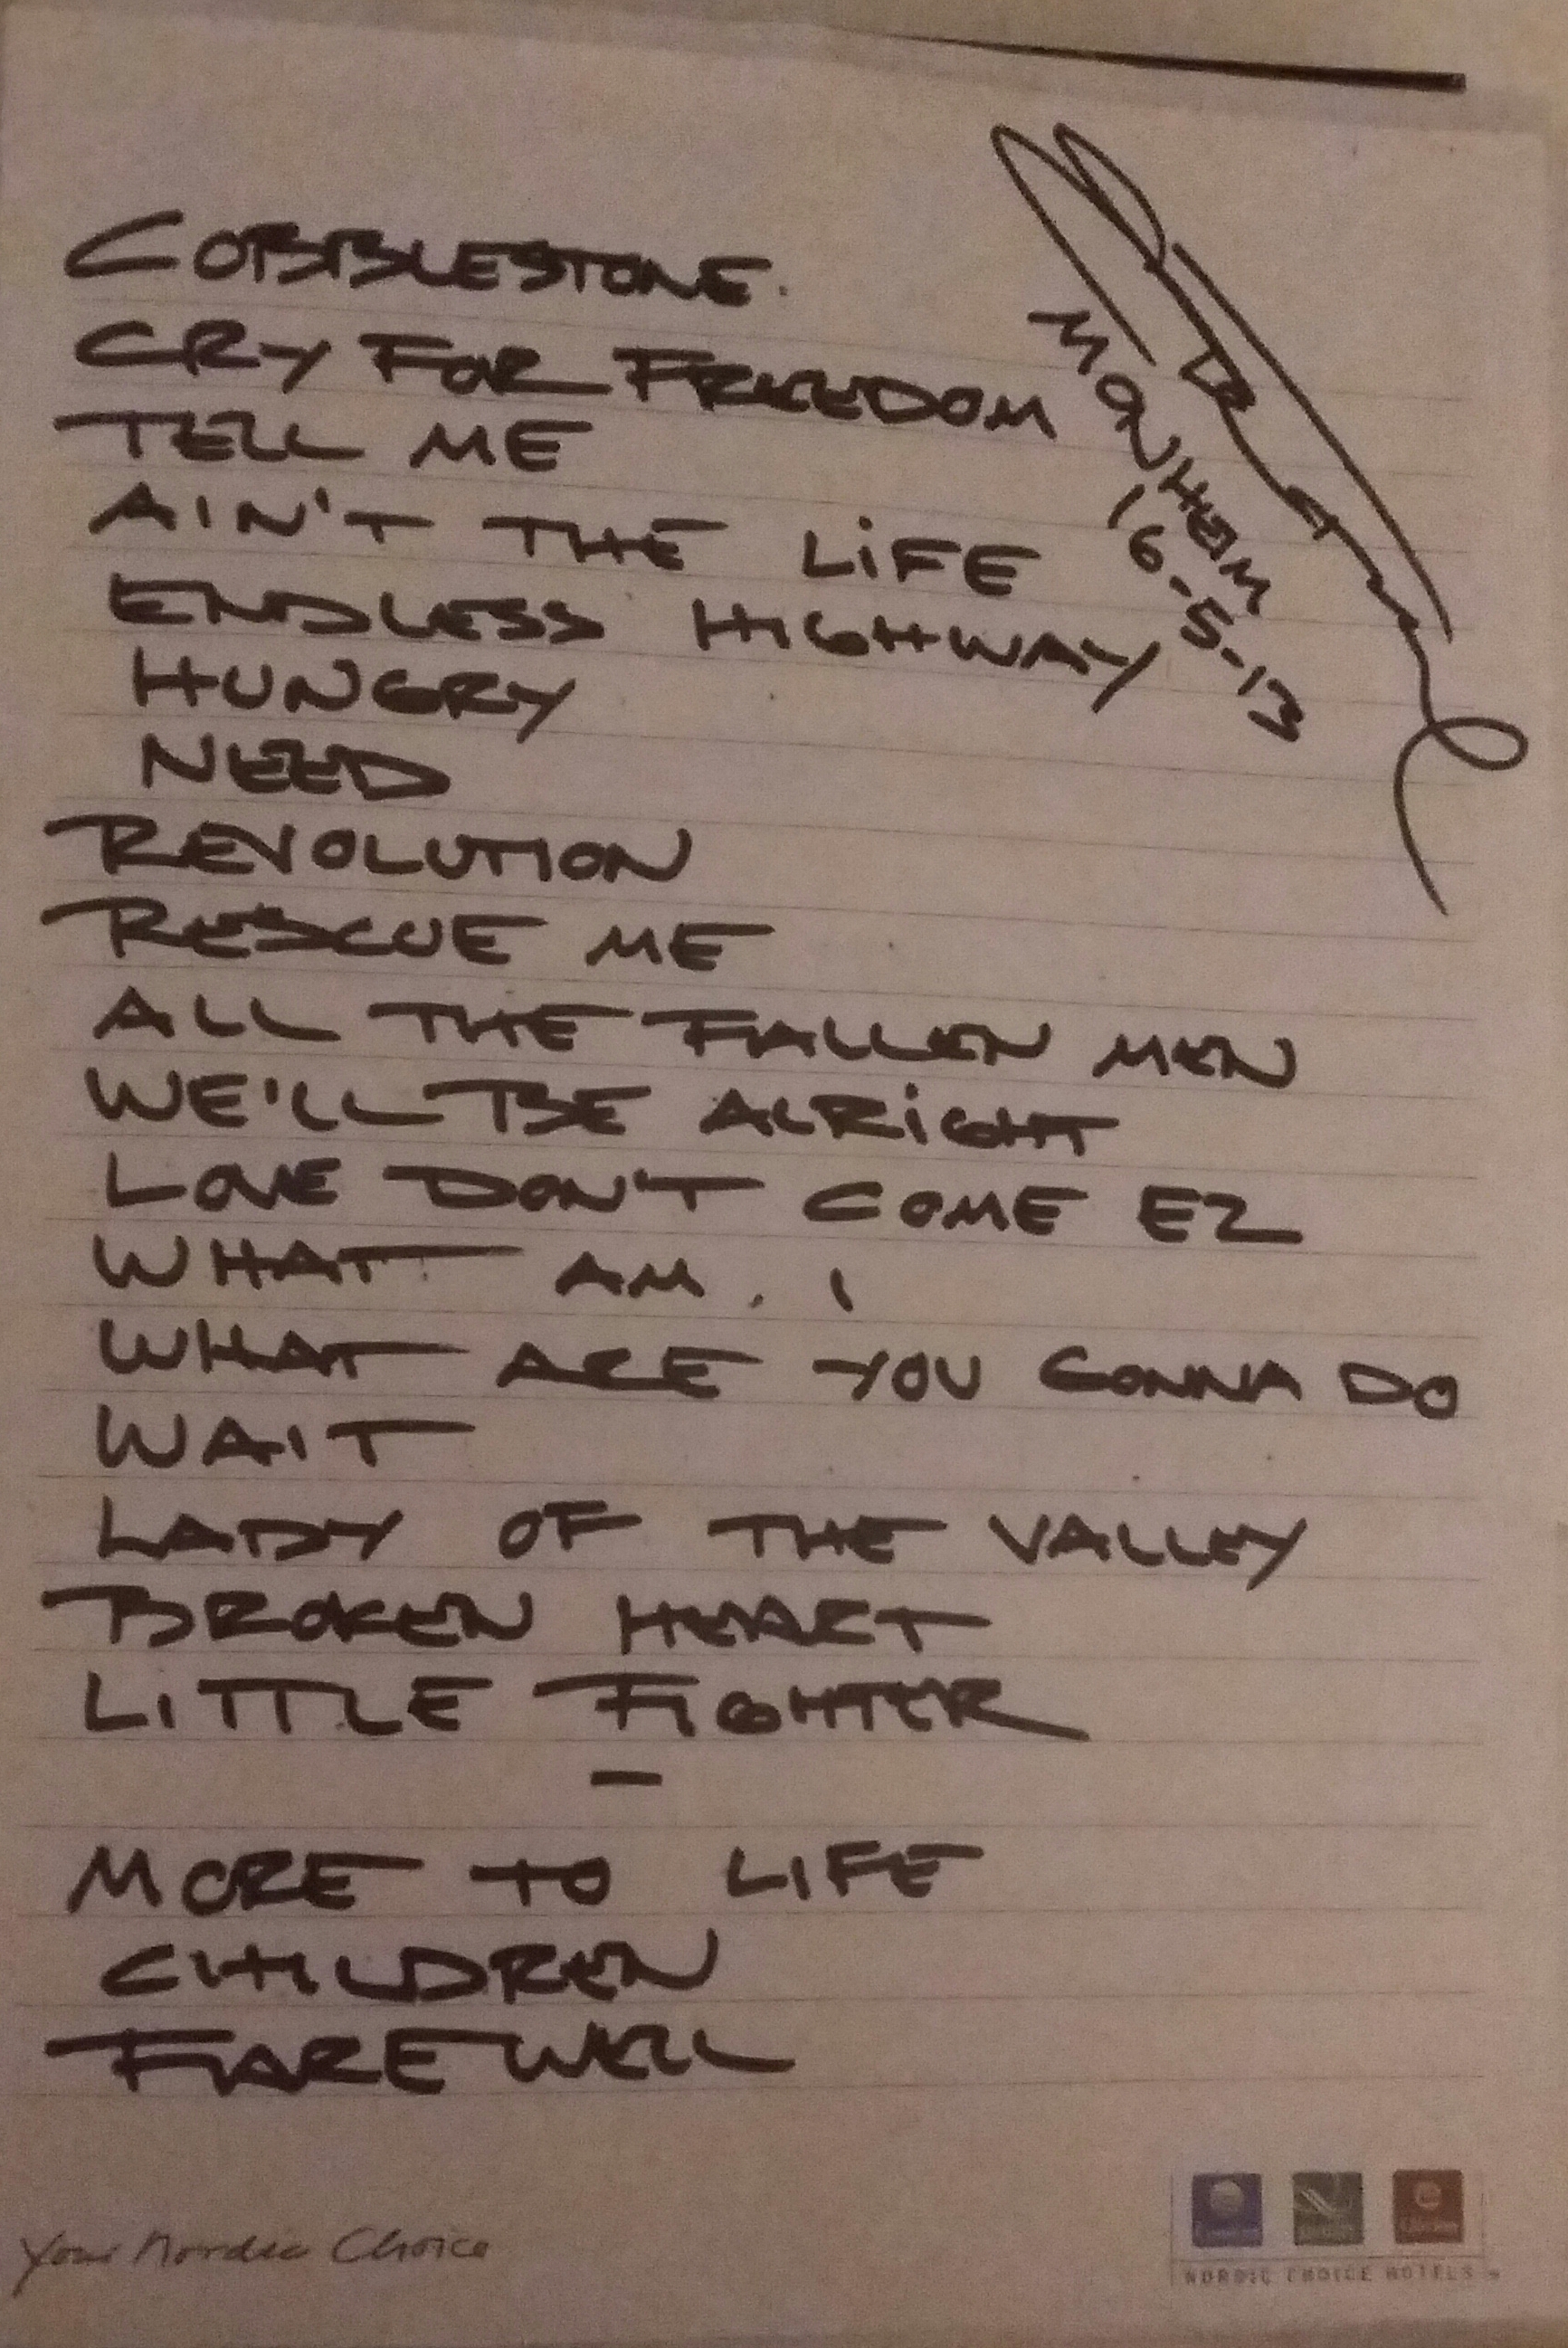 COBBLESTONE.
CRY FOR FREEDOM
TELL ME
AIN'T THE LIFE
ENDLESS HIGHWAY
HUNGRY
NEED
REVOLUTION
RESCUE ME
ALL THE FALLEN MEN
WE'LL BE ALRIGHT
LOVE DON'T COME EZ
WHAT AM I
WHAT ARE YOU GONNA DO
WAIT
LADY OF THE VALLEY
BROKEN HEART
LITTLE FIGHTER
–
MORE TO LIFE
CHILDREN
FAREWELL
16-5-13
Your Nordic Choice
NORDIC CHOICE HOTELS